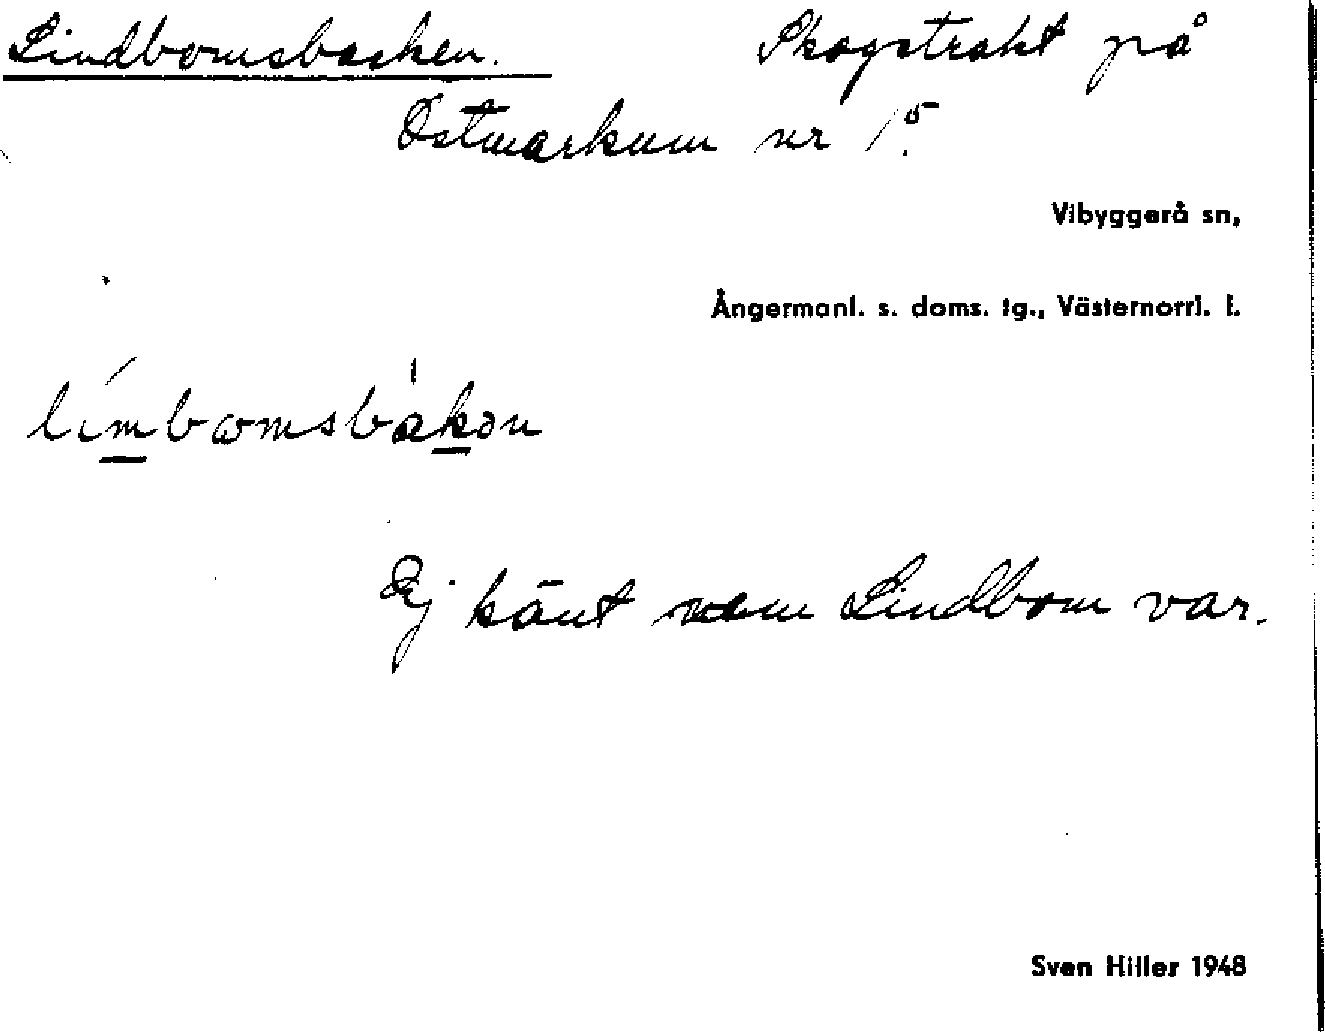 Lindbomsbacken. Skogstrakt på
Östmarkum nr 15.
Vibyggerå sn,
Ångermanl. s. doms. tg., Västernorrl. l.
límbomsbàkən
Ej känt vem Lindbom var.
Sven Hiller 1948